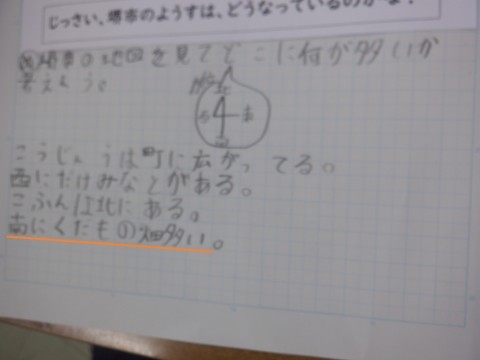 じっさい、堺市のようすは、どうなっているのかな?
堺市の地図を見てどこに何が多いか
考えよう。
北
西 東
南
こうじょうは町に広がってる。
西にだけみなとがある。
こふんは北にある。
南にくだもの畑多い。